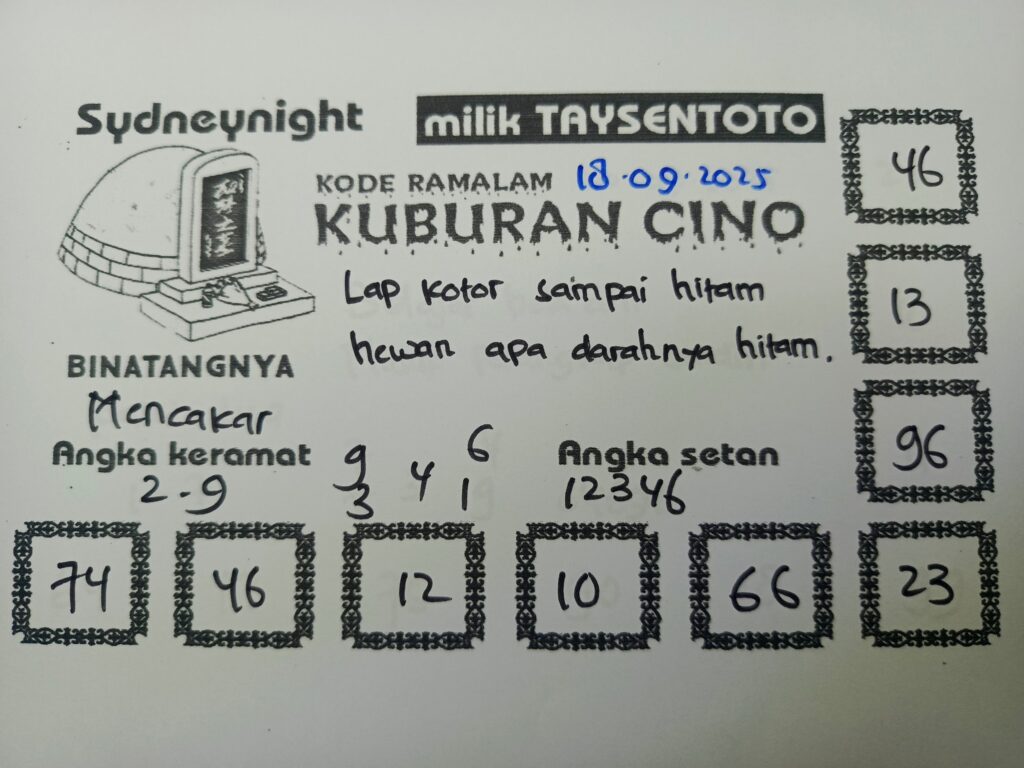 Sydneynight
milik TAYSENTOTO
KODE RAMALAM 18.09.2025
KUBURAN CINO
Lap kotor sampai hitam
hewan apa darahnya hitam.
BINATANGNYA
Mencakar
Angka keramat
2-9
9 6
4
3 1
Angka setan
12346
46
13
96
74 46 12 10 66 23